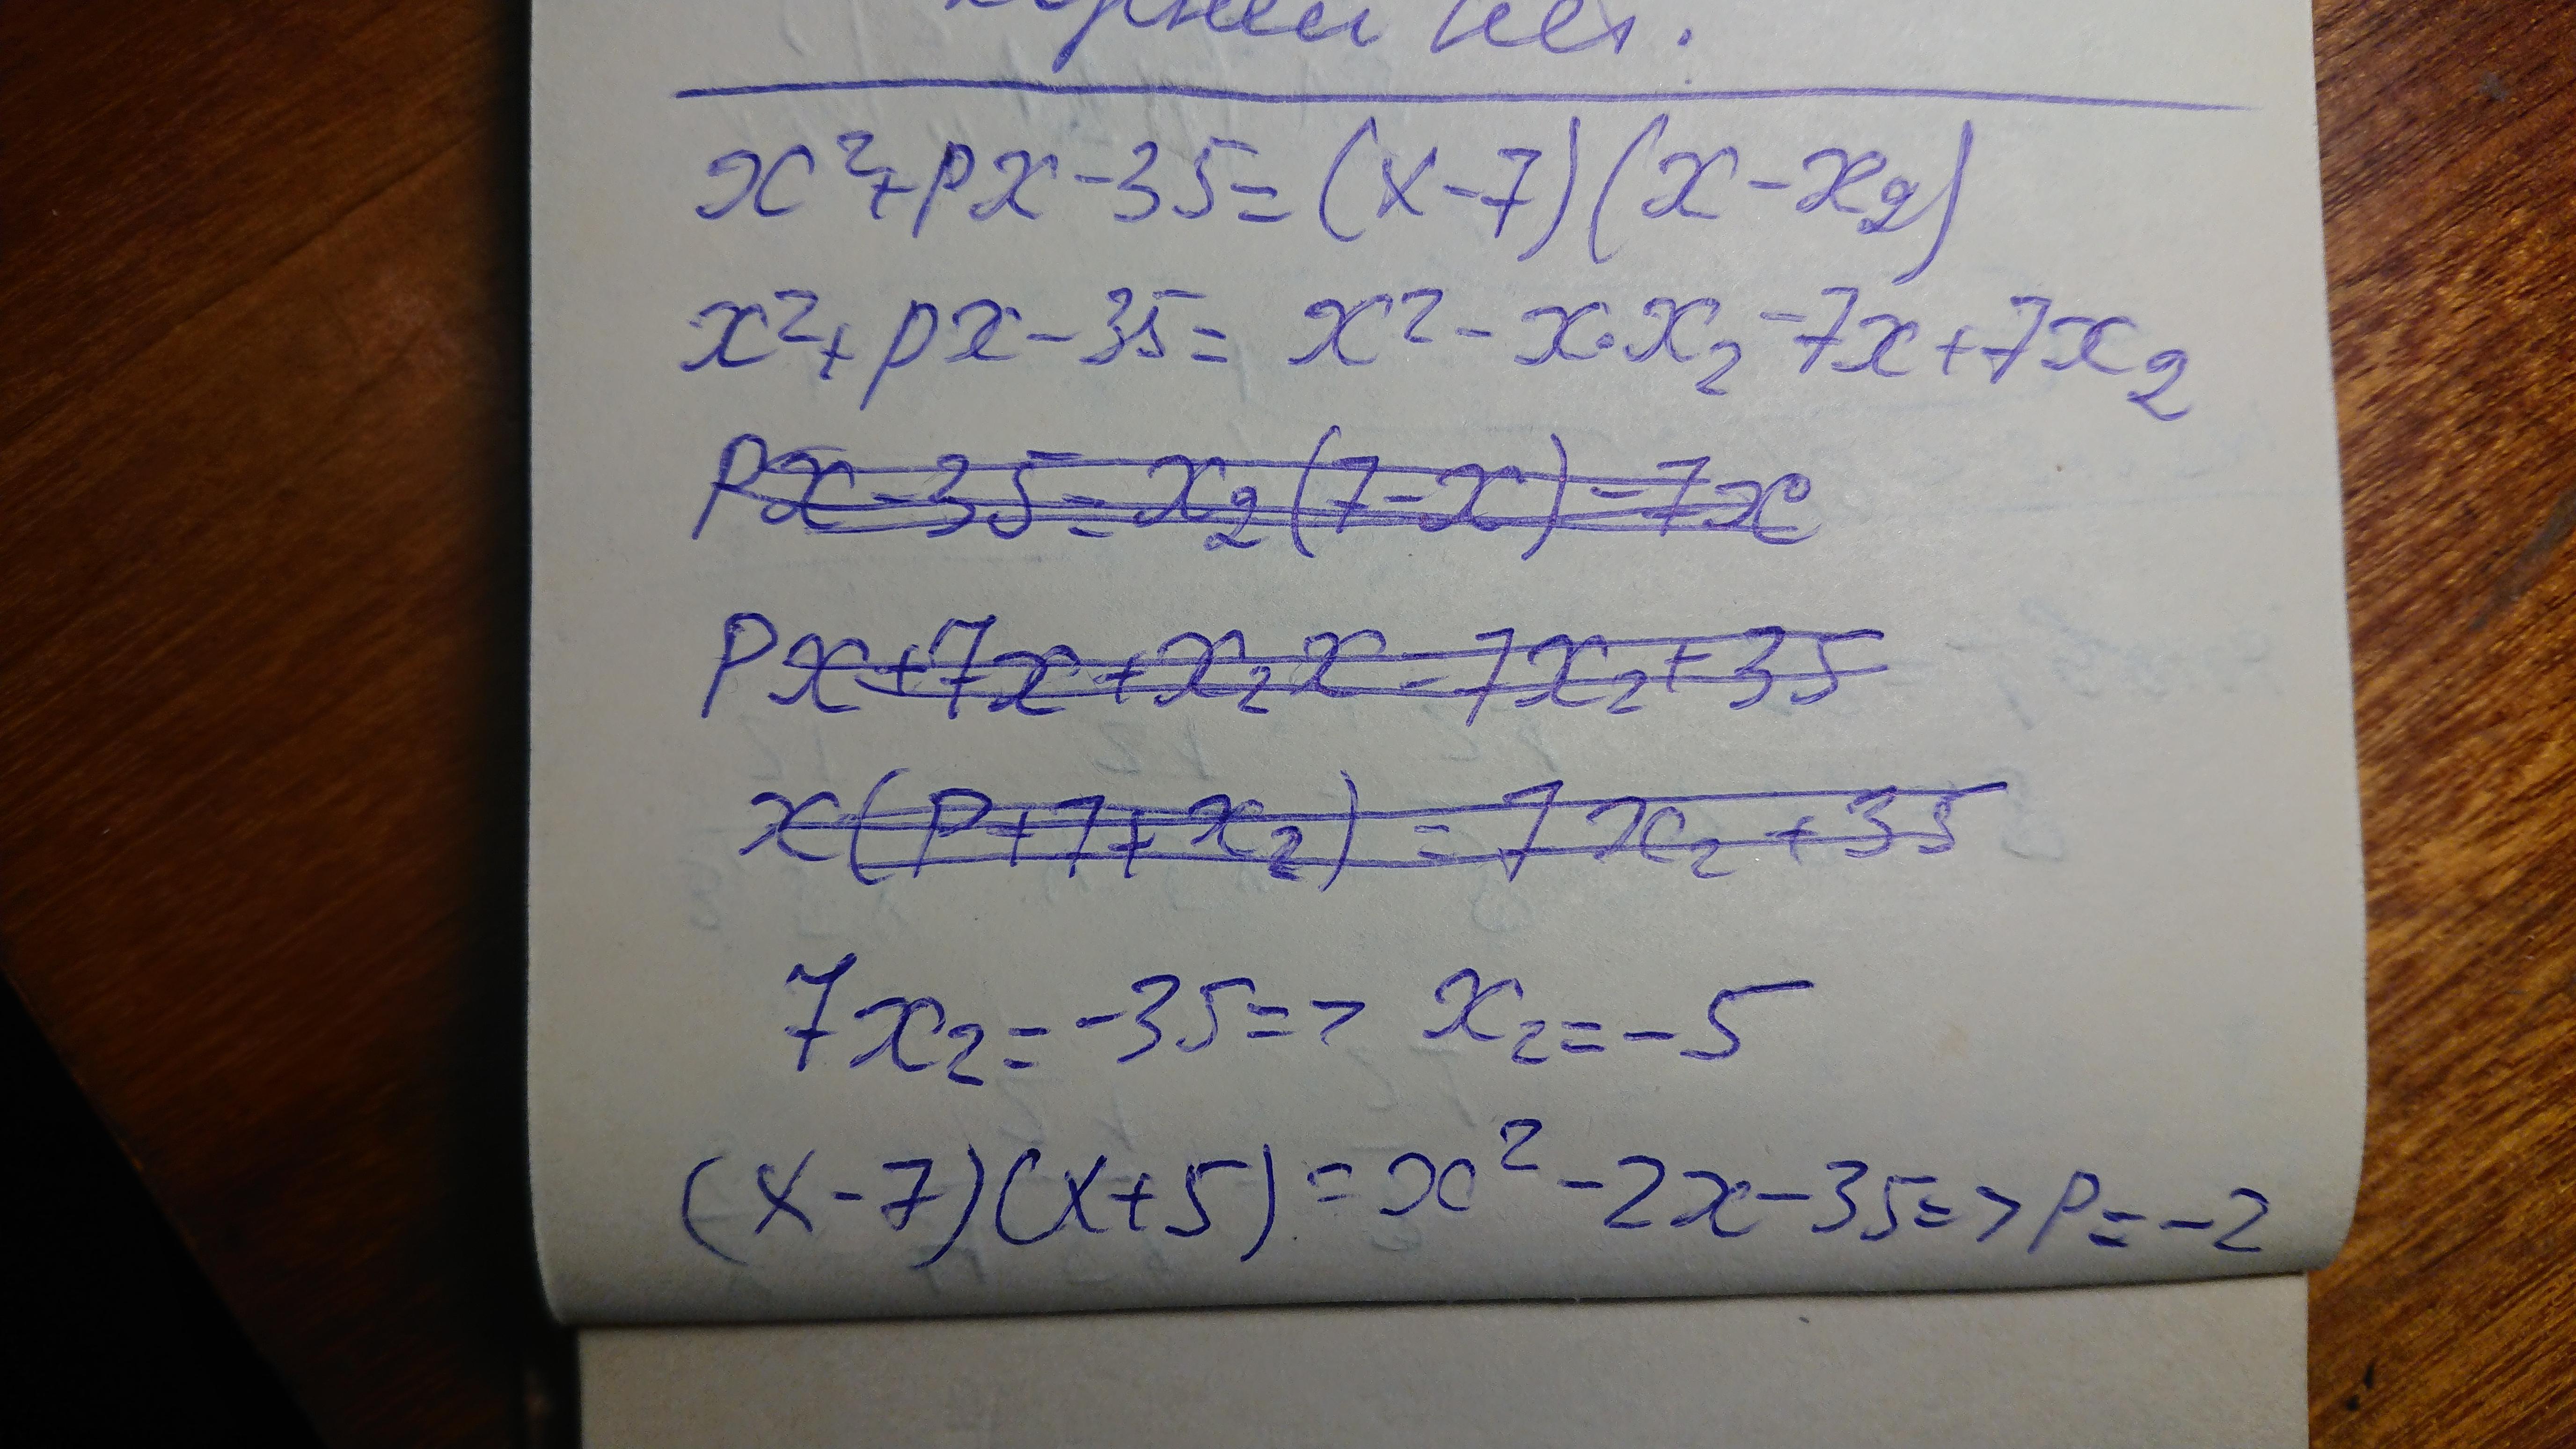 корней нет.
x²+px-35=(x-7)(x-x₂)
x²+px-35= x²-x·x₂-7x+7x₂
px-35=x₂(7-x)-7x
px+7x+x₂x=7x₂+35
x(p+7+x₂)=7x₂+35
7x₂=-35=> x₂=-5
(x-7)(x+5)=x²-2x-35=>p=-2